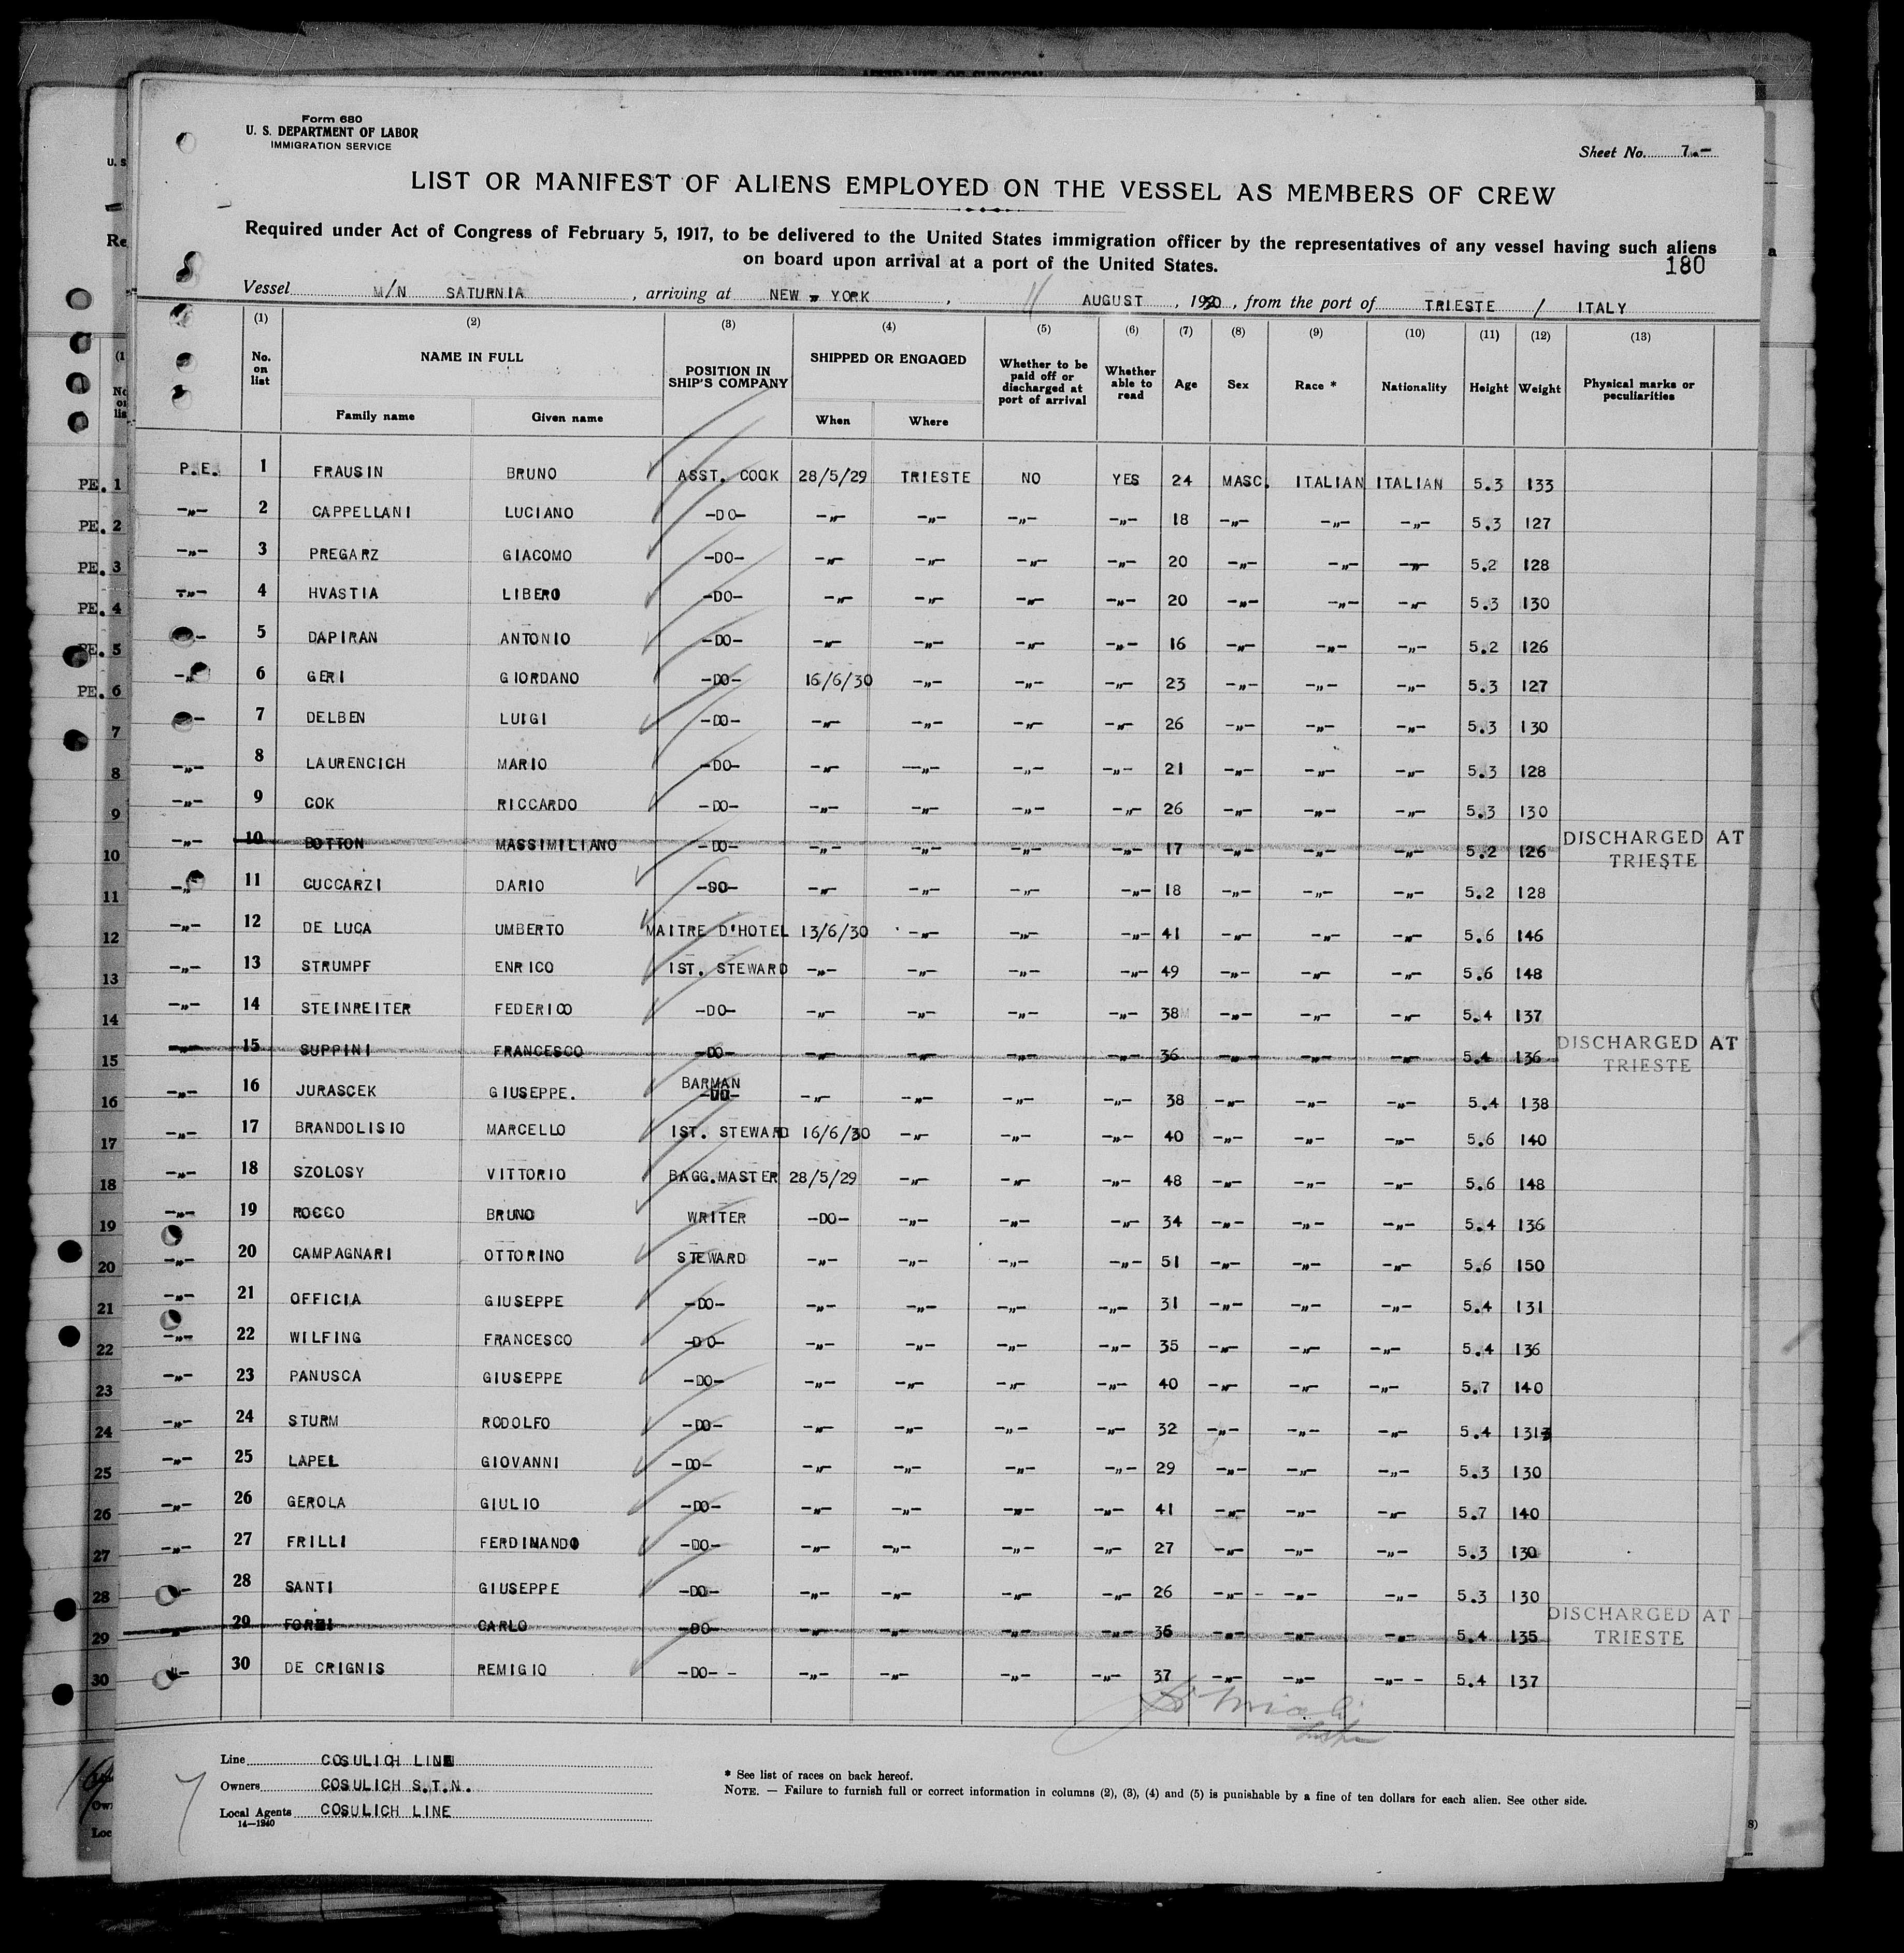 Form 680
U. S. DEPARTMENT OF LABOR
IMMIGRATION SERVICE
Sheet No. 7.-
LIST OR MANIFEST OF ALIENS EMPLOYED ON THE VESSEL AS MEMBERS OF CREW
Required under Act of Congress of February 5, 1917, to be delivered to the United States immigration officer by the representatives of any vessel having such aliens
on board upon arrival at a port of the United States.
180
Vessel M/N SATURNIA , arriving at NEW - YORK , 11 AUGUST , 1930 , from the port of TRIESTE / ITALY
(1) (2) (3) (4) (5) (6) (7) (8) (9) (10) (11) (12) (13)
No. on list NAME IN FULL Family name Given name POSITION IN SHIP'S COMPANY SHIPPED OR ENGAGED When Where Whether to be paid off or discharged at port of arrival Whether able to read Age Sex Race * Nationality Height Weight Physical marks or peculiarities
P.E. 1 FRAUSIN BRUNO ASST. COOK 28/5/29 TRIESTE NO YES 24 MASC. ITALIAN ITALIAN 5.3 133
-"- 2 CAPPELLANI LUCIANO -DO- -"- -"- -"- -"- 18 -"- -"- -"- 5.3 127
-"- 3 PREGARZ GIACOMO -DO- -"- -"- -"- -"- 20 -"- -"- -"- 5.2 128
-"- 4 HVASTIA LIBERO -DO- -"- -"- -"- -"- 20 -"- -"- -"- 5.3 130
- 5 DAPIRAN ANTONIO -DO- -"- -"- -"- -"- 16 -"- -"- -"- 5.2 126
-" 6 GERI GIORDANO -DO- 16/6/30 -"- -"- -"- 23 -"- -"- -"- 5.3 127
- 7 DELBEN LUIGI -DO- -"- -"- -"- -"- 26 -"- -"- -"- 5.3 130
-"- 8 LAURENCICH MARIO -DO- -"- -"- -"- -"- 21 -"- -"- -"- 5.3 128
-"- 9 COK RICCARDO -DO- -"- -"- -"- -"- 26 -"- -"- -"- 5.3 130
-"- 10 BOTTON MASSIMILIANO -DO- -"- -"- -"- -"- 17 -"- -"- -"- 5.2 126 DISCHARGED AT TRIESTE
-" 11 CUCCARZI DARIO -DO- -"- -"- -"- -"- 18 -"- -"- -"- 5.2 128
-"- 12 DE LUCA UMBERTO MAITRE D'HOTEL 13/6/30 -"- -"- -"- 41 -"- -"- -"- 5.6 146
-"- 13 STRUMPF ENRICO IST. STEWARD -"- -"- -"- -"- 49 -"- -"- -"- 5.6 148
-"- 14 STEINREITER FEDERICO -DO- -"- -"- -"- -"- 38 -"- -"- -"- 5.4 137
-"- 15 SUPPINI FRANCESCO -DO- -"- -"- -"- -"- 36 -"- -"- -"- 5.4 136 DISCHARGED AT TRIESTE
-"- 16 JURASCEK GIUSEPPE. BARMAN -DO- -"- -"- -"- -"- 38 -"- -"- -"- 5.4 138
-"- 17 BRANDOLISIO MARCELLO IST. STEWARD 16/6/30 -"- -"- -"- 40 -"- -"- -"- 5.6 140
-"- 18 SZOLOSY VITTORIO BAGG.MASTER 28/5/29 -"- -"- -"- 48 -"- -"- -"- 5.6 148
-"- 19 ROCCO BRUNO WRITER -DO- -"- -"- -"- 34 -"- -"- -"- 5.4 136
-"- 20 CAMPAGNARI OTTORINO STEWARD -"- -"- -"- -"- 51 -"- -"- -"- 5.6 150
-"- 21 OFFICIA GIUSEPPE -DO- -"- -"- -"- -"- 31 -"- -"- -"- 5.4 131
-"- 22 WILFING FRANCESCO -DO- -"- -"- -"- -"- 35 -"- -"- -"- 5.4 136
-"- 23 PANUSCA GIUSEPPE -DO- -"- -"- -"- -"- 40 -"- -"- -"- 5.7 140
-"- 24 STURM RODOLFO -DO- -"- -"- -"- -"- 32 -"- -"- -"- 5.4 131
-"- 25 LAPEL GIOVANNI -DO- -"- -"- -"- -"- 29 -"- -"- -"- 5.3 130
-"- 26 GEROLA GIULIO -DO- -"- -"- -"- -"- 41 -"- -"- -"- 5.7 140
-"- 27 FRILLI FERDINANDO -DO- -"- -"- -"- -"- 27 -"- -"- -"- 5.3 130
- 28 SANTI GIUSEPPE -DO- -"- -"- -"- -"- 26 -"- -"- -"- 5.3 130
" 29 CARLO -DO- -"- -"- -"- -"- 36 -"- -"- -"- 5.4 135 DISCHARGED AT TRIESTE
"- 30 DE CRIGNIS REMIGIO -DO- - -"- -"- -"- -"- 37 -"- -"- -"- - 5.4 137
Line COSULICH LINE
Owners COSULICH S.T.N.
Local Agents COSULICH LINE
14—1240
* See list of races on back hereof.
NOTE. — Failure to furnish full or correct information in columns (2), (3), (4) and (5) is punishable by a fine of ten dollars for each alien. See other side.